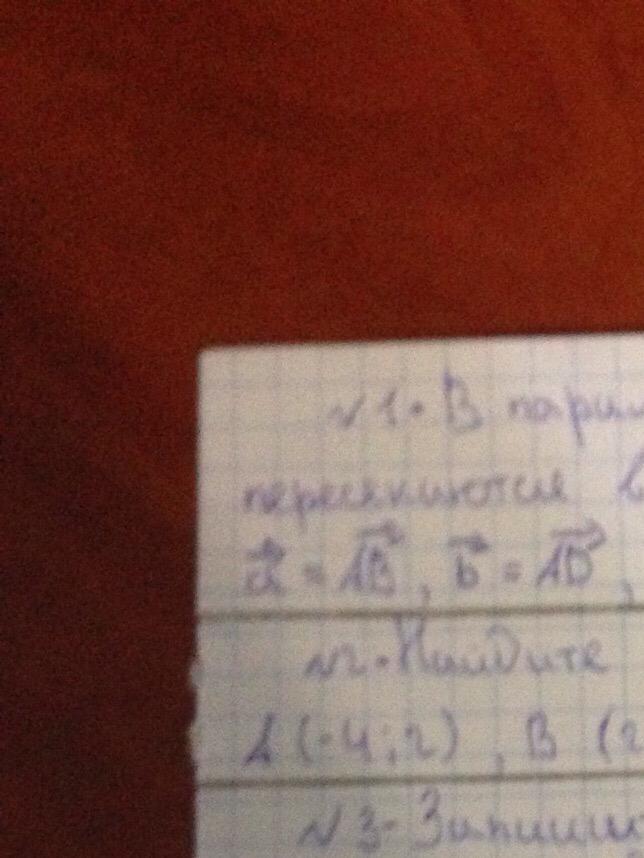 №1. В парал
пересекаются
a⃗ = AB⃗, b⃗ = AD⃗,
№2. Найдите
A (-4;2), B (2
№3. Запиши